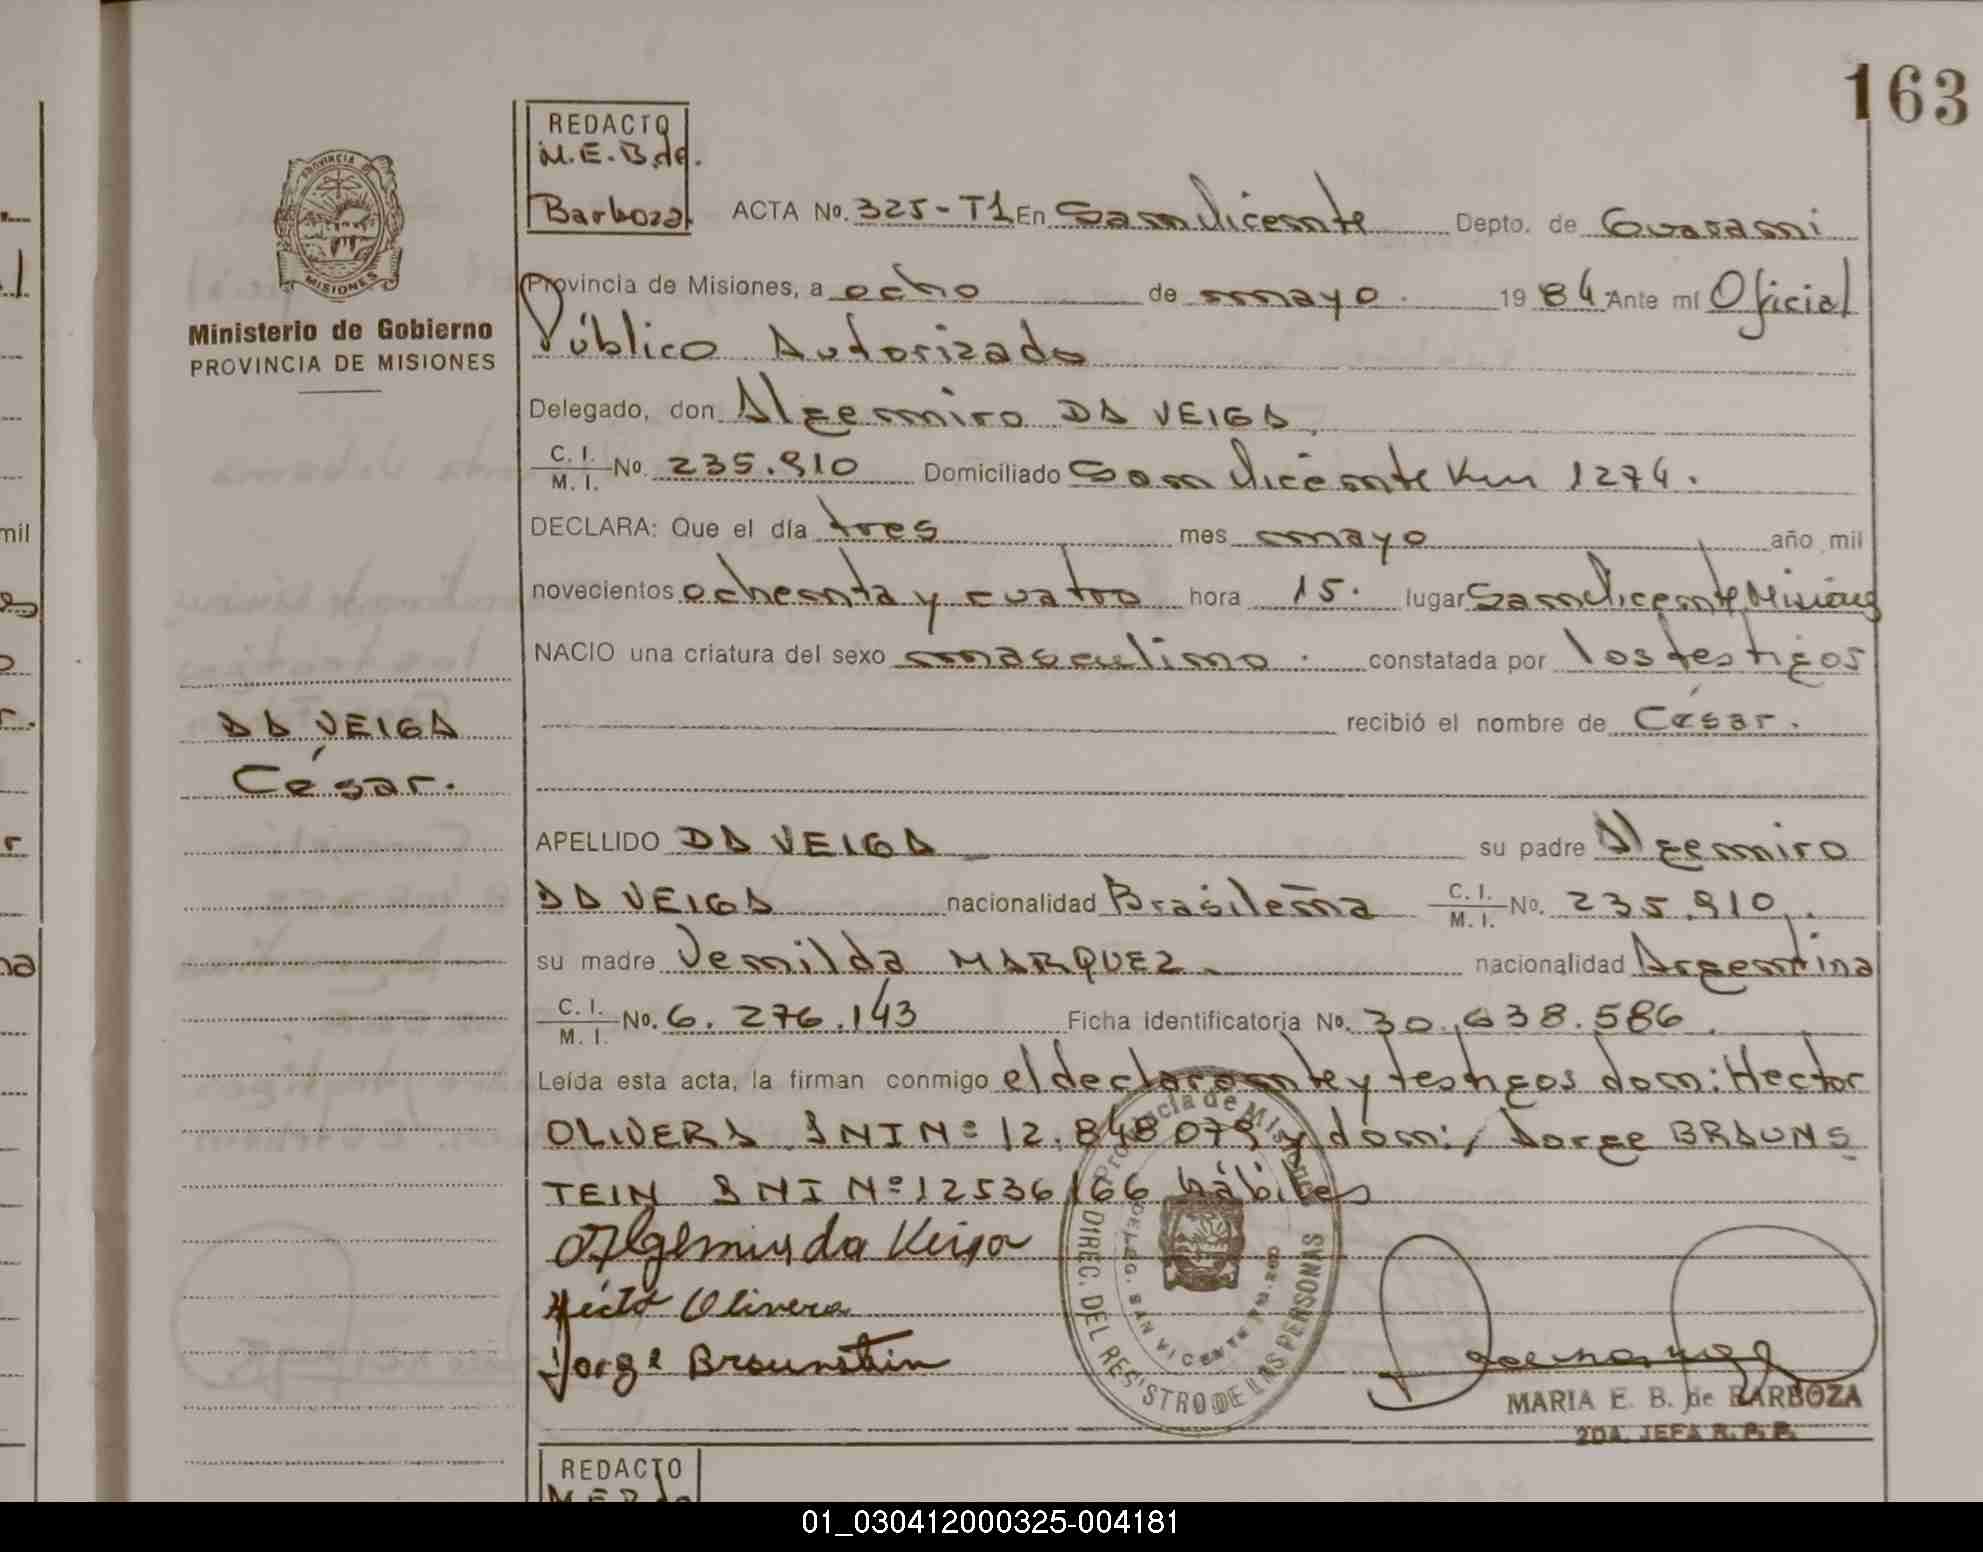 163
REDACTO
M.E.B.de.
Barboza
PROVINCIA DE
MISIONES
Ministerio de Gobierno
PROVINCIA DE MISIONES
ACTA No. 325-T1 En San Vicente Depto. de Guaraní
Provincia de Misiones, a ocho de mayo. 1984 Ante mí Oficial
Público Autorizado
Delegado, don Algemiro DA VEIGA,
C. I. / M. I. No. 235.910 Domiciliado San Vicente Km 1274.
DECLARA: Que el día tres mes mayo año mil
novecientos ochenta y cuatro hora 15. lugar San Vicente, Misiones
NACIO una criatura del sexo masculino. constatada por los testigos
recibió el nombre de César.
DA VEIGA
César.
APELLIDO DA VEIGA su padre Algemiro
DA VEIGA nacionalidad Brasileña C. I. / M. I. No. 235.910,.
su madre Venilda MARQUEZ. nacionalidad Argentina
C. I. / M. I. No. 6.276.143 Ficha identificatoria No. 30.638.586.
Leída esta acta, la firman conmigo el declarante y testigos don: Hector
OLIVERA DNI Nº 12.848079 y don: Jorge BRAUNS
TEIN DNI Nº 12536166 hábiles
Algemiro da Veiga
Héctor Olivera
Jorge Braunstein
Provincia de Misiones
DIREC. DEL REGISTRO DE LAS PERSONAS
DELEG. SAN VICENTE
MARIA E. B. de BARBOZA
2DA. JEFA R. P. P.
REDACTO
M.E.B.de
mil
01_030412000325-004181